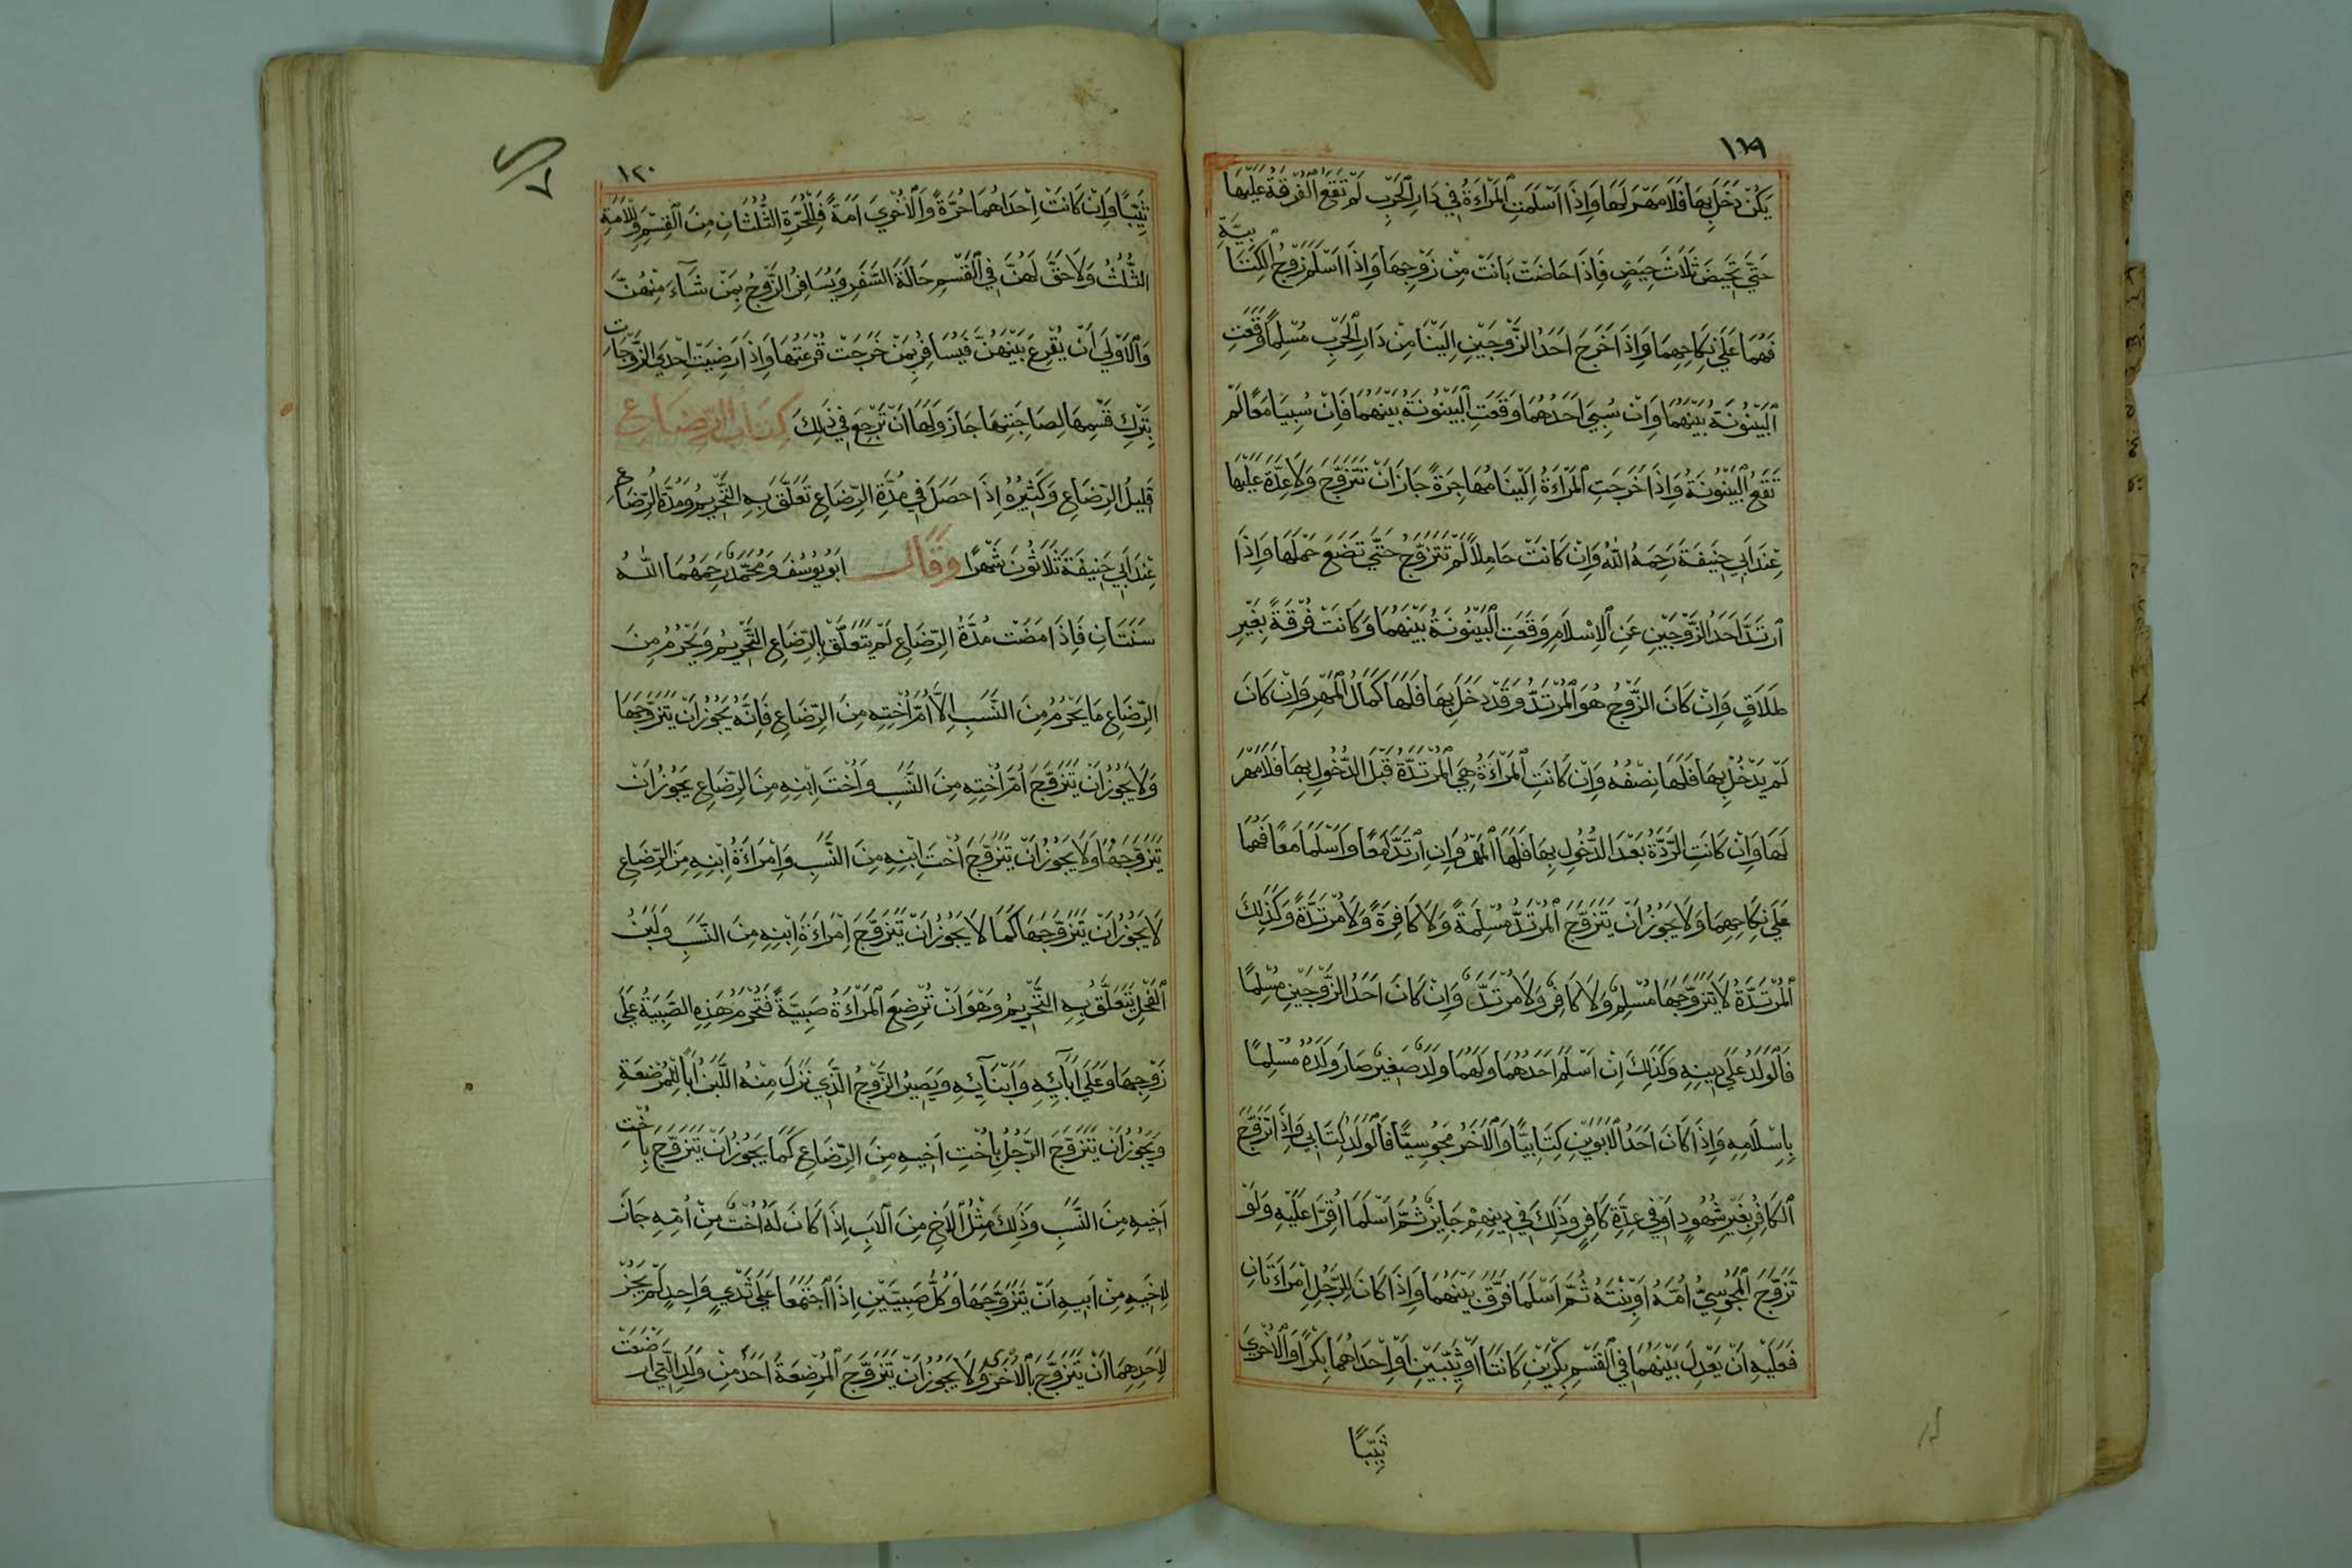 ١١٩
يَكُنْ دَخَلَ بِهَا فَلَا مَهْرَ لَهَا وَاِذَا اَسْلَمَتِ الْمَرْاَةُ فِي دَارِ الْحَرْبِ لَمْ تَقَعِ الْفُرْقَةُ عَلَيْهَا
حَتَّي تَحِيضَ ثَلَاثَ حِيَضٍ فَاِذَا حَاضَتْ بَانَتْ مِنْ زَوْجِهَا وَاِذَا اَسْلَمَ زَوْجُ الْكِتَابِيَّةِ
فَهُمَا عَلَي نِكَاحِهِمَا وَاِذَا خَرَجَ اَحَدُ الزَّوْجَيْنِ اِلَيْنَا مِنْ دَارِ الْحَرْبِ مُسْلِمًا وَقَعَتِ
الْبَيْنُونَةُ بَيْنَهُمَا وَاِنْ سُبِيَ اَحَدُهُمَا وَقَعَتِ الْبَيْنُونَةُ بَيْنَهُمَا فَاِنْ سُبِيَا مَعًا لَمْ
تَقَعِ الْبَيْنُونَةُ وَاِذَا خَرَجَتِ الْمَرْاَةُ اِلَيْنَا مُهَاجِرَةً جَازَ اَنْ تَتَزَوَّجَ وَلَا عِدَّةَ عَلَيْهَا
عِنْدَ اَبِي حَنِيفَةَ رَحِمَهُ اللّٰهُ وَاِنْ كَانَتْ حَامِلًا لَمْ تَتَزَوَّجْ حَتَّي تَضَعَ حَمْلَهَا وَاِذَا
ارْتَدَّ اَحَدُ الزَّوْجَيْنِ عَنِ الْاِسْلَامِ وَقَعَتِ الْبَيْنُونَةُ بَيْنَهُمَا وَكَانَتْ فُرْقَةً بِغَيْرِ
طَلَاقٍ وَاِنْ كَانَ الزَّوْجُ هُوَ الْمُرْتَدُّ وَقَدْ دَخَلَ بِهَا فَلَهَا كَمَالُ الْمَهْرِ وَاِنْ كَانَ
لَمْ يَدْخُلْ بِهَا فَلَهَا نِصْفُهُ وَاِنْ كَانَتِ الْمَرْاَةُ هِيَ الْمُرْتَدَّةُ قَبْلَ الدُّخُولِ بِهَا فَلَا مَهْرَ
لَهَا وَاِنْ كَانَتِ الرِّدَّةُ بَعْدَ الدُّخُولِ بِهَا فَلَهَا الْمَهْرُ وَاِنِ ارْتَدَّا مَعًا وَاَسْلَمَا مَعًا فَهُمَا
عَلَي نِكَاحِهِمَا وَلَا يَجُوزُ اَنْ يَتَزَوَّجَ الْمُرْتَدُّ مُسْلِمَةً وَلَا كَافِرَةً وَلَا مُرْتَدَّةً وَكَذٰلِكَ
الْمُرْتَدَّةُ لَا يَتَزَوَّجُهَا مُسْلِمٌ وَلَا كَافِرٌ وَلَا مُرْتَدٌّ وَاِنْ كَانَ اَحَدُ الزَّوْجَيْنِ مُسْلِمًا
فَالْوَلَدُ عَلَي دِينِهِ وَكَذٰلِكَ اِنْ اَسْلَمَ اَحَدُهُمَا وَلَهُمَا وَلَدٌ صَغِيرٌ صَارَ وَلَدُهُ مُسْلِمًا
بِاِسْلَامِهِ وَاِذَا كَانَ اَحَدُ الْاَبَوَيْنِ كِتَابِيًّا وَالْاٰخَرُ مَجُوسِيًّا فَالْوَلَدُ كِتَابِيٌّ وَاِذَا تَزَوَّجَ
الْكَافِرُ بِغَيْرِ شُهُودٍ اَوْ فِي عِدَّةِ كَافِرٍ وَذٰلِكَ فِي دِينِهِمْ جَايِزٌ ثُمَّ اَسْلَمَا اُقِرَّا عَلَيْهِ وَلَوْ
تَزَوَّجَ الْمَجُوسِيُّ اُمَّهُ اَوِ بْنَتَهُ ثُمَّ اَسْلَمَا فُرِّقَ بَيْنَهُمَا وَاِذَا كَانَ لِلرَّجُلِ امْرَاَتَانِ
فَعَلَيْهِ اَنْ يَعْدِلَ بَيْنَهُمَا فِي الْقَسْمِ بِكْرَيْنِ كَانَتَا اَوْ ثَيِّبَيْنِ اَوْ اِحْدَاهُمَا بِكْرًا وَالْاُخْرَي
ثَيِّبًا
١٢٠
ثَيِّبًا وَاِنْ كَانَتْ اِحْدَاهُمَا حُرَّةً وَالْاُخْرَي اَمَةً فَلِلْحُرَّةِ الثُّلُثَانِ مِنَ الْقِسْمِ وَلِلْاَمَةِ
الثُّلُثُ وَلَا حَقَّ لَهُنَّ فِي الْقَسْمِ حَالَةَ السَّفَرِ وَيُسَافِرُ الزَّوْجُ بِمَنْ شَآءَ مِنْهُنَّ
وَالْاَوْلَي اَنْ يُقْرِعَ بَيْنَهُنَّ فَيُسَافِرُ بِمَنْ خَرَجَتْ قُرْعَتُهَا وَاِذَا رَضِيَتْ اِحْدَي الزَّوْجَاتِ
بِتَرْكِ قَسْمِهَا لِصَاحِبَتِهَا جَازَ وَلَهَا اَنْ تَرْجِعَ فِي ذٰلِكَ كِتَابُ الرِّضَاعِ
قَلِيلُ الرِّضَاعِ وَكَثِيرُهُ اِذَا حَصَلَ فِي مُدَّةِ الرِّضَاعِ تَعَلَّقَ بِهِ التَّحْرِيمُ وَمُدَّةُ الرِّضَاعِ
عِنْدَ اَبِي حَنِيفَةَ ثَلَاثُونَ شَهْرًا وَقَالَ اَبُو يُوسُفَ وَمُحَمَّدٌ رَحِمَهُمَا اللّٰهُ
سَنَتَانِ فَاِذَا مَضَتْ مُدَّةُ الرِّضَاعِ لَمْ يَتَعَلَّقْ بِالرِّضَاعِ التَّحْرِيمُ وَيَحْرُمُ مِنَ
الرِّضَاعِ مَا يَحْرُمُ مِنَ النَّسَبِ اِلَّا اُمَّ اُخْتِهِ مِنَ الرِّضَاعِ فَاِنَّهُ يَجُوزُ اَنْ يَتَزَوَّجَهَا
وَلَا يَجُوزُ اَنْ يَتَزَوَّجَ اُمَّ اُخْتِهِ مِنَ النَّسَبِ وَاُخْتَ اِبْنِهِ مِنَ الرِّضَاعِ يَجُوزُ اَنْ
يَتَزَوَّجَهَا وَلَا يَجُوزُ اَنْ يَتَزَوَّجَ اُخْتَ اِبْنِهِ مِنَ النَّسَبِ وَاِمْرَاَةُ اِبْنِهِ مِنَ الرِّضَاعِ
لَا يَجُوزُ اَنْ يَتَزَوَّجَهَا كَمَا لَا يَجُوزُ اَنْ يَتَزَوَّجَ اِمْرَاَةَ اِبْنِهِ مِنَ النَّسَبِ وَلَبَنُ
الْفَحْلِ يَتَعَلَّقُ بِهِ التَّحْرِيمُ وَهُوَ اَنْ تُرْضِعَ الْمَرْاَةُ صَبِيَّةً فَتَحْرُمُ هٰذِهِ الصَّبِيَّةُ عَلَي
زَوْجِهَا وَعَلَي اٰبَآئِهِ وَاَبْنَآئِهِ وَيَصِيرُ الزَّوْجُ الَّذِي نَزَلَ مِنْهُ اللَّبَنُ اَبًا لِلْمُرْضَعَةِ
وَيَجُوزُ اَنْ يَتَزَوَّجَ الرَّجُلُ بِاُخْتِ اَخِيهِ مِنَ الرِّضَاعِ كَمَا يَجُوزُ اَنْ يَتَزَوَّجَ بِاُخْتِ
اَخِيهِ مِنَ النَّسَبِ وَذٰلِكَ مِثْلُ الْاَخِ مِنَ الْاَبِ اِذَا كَانَ لَهُ اُخْتٌ مِنْ اُمِّهِ جَازَ
لِاَخِيهِ مِنْ اَبِيهِ اَنْ يَتَزَوَّجَهَا وَكُلُّ صَبِيَّيْنِ اِذَا اجْتَمَعَا عَلَي ثَدْيٍ وَاحِدٍ لَمْ يَجُزْ
لِاَحَدِهِمَا اَنْ يَتَزَوَّجَ بِالْاُخْرَي وَلَا يَجُوزُ اَنْ يَتَزَوَّجَ الْمُرْضَعَةُ اَحَدٌ مِنْ وَلَدِ الَّتِي اَرْضَعَتْ